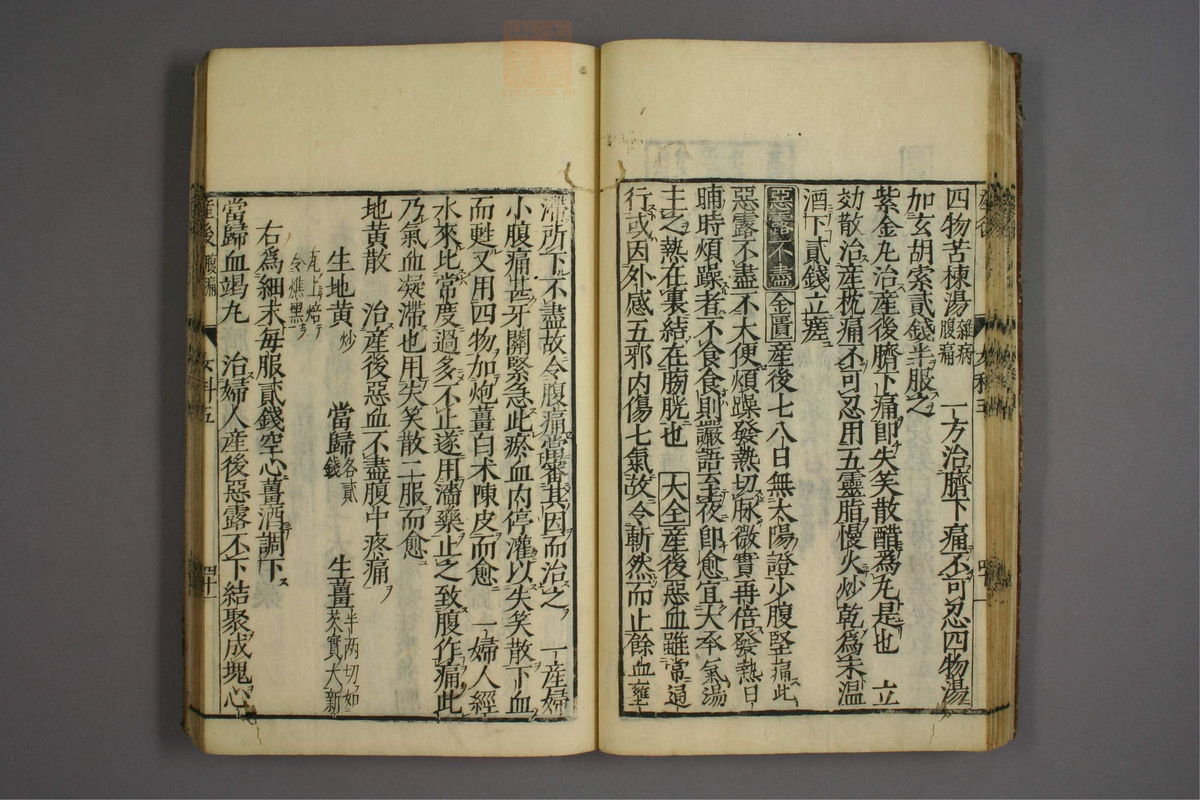 四物苦楝湯雜病腹痛 一方治臍下痛不可忍四物湯
加玄胡索貳錢半服之
紫金丸治產後臍下痛即失笑散醋為丸是也 立
効散治産枕痛不可忍用五靈脂慢火炒乾為末温
酒下貳錢立瘥
惡露不盡 金匱産後七八日無太陽證少腹堅痛此
惡露不盡不大便煩躁發熱切脉微實再倍發熱日
晡時煩躁者不食食則讝語至夜即愈宜大承氣湯
主之熱在裏結在膀胱也 大全産後惡血雖常通
行或因外感五邪内傷七氣故令斬然而止餘血壅
滯所下不盡故令腹痛當審其因而治之 一産婦
小腹痛甚牙關緊急此瘀血内停灌以失笑散下血
而甦又用四物加炮薑白朮陳皮而愈 一婦人經
水來比常度過多不止遂用濇藥止之致腹作痛此
乃氣血凝滯也用失笑散二服而愈
地黄散 治産後惡血不盡腹中疼痛
生地黄炒 當歸各貳錢 生薑半兩切如芥實大新
瓦上焙令燋黑
右為細末毎服貳錢空心薑酒調下
當歸血竭丸 治婦人産後惡露不下結聚成塊心
産後腹痛 女科五 四十一